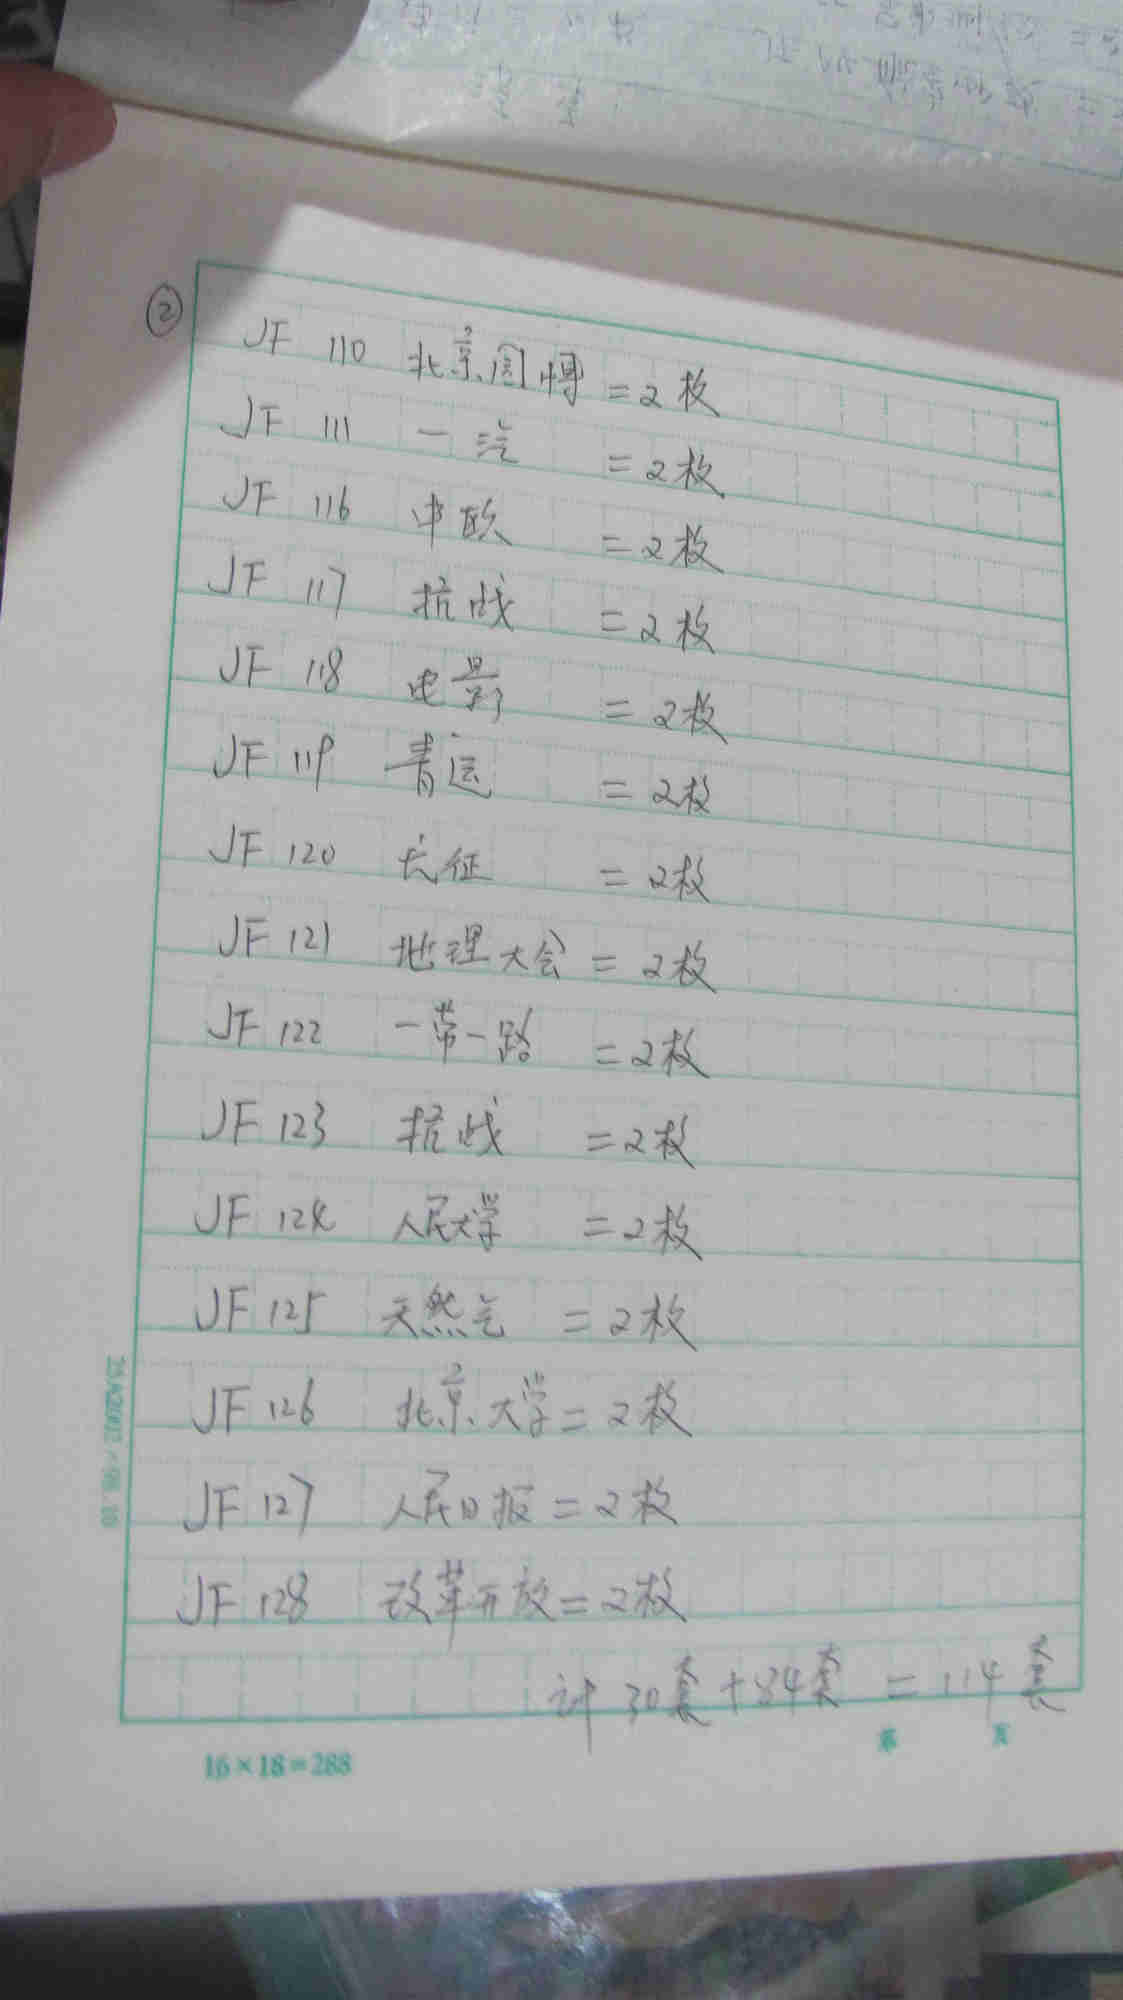 ②
JF 110 北京园博 =2枚
JF 111 一汽 =2枚
JF 116 中欧 =2枚
JF 117 抗战 =2枚
JF 118 电影 =2枚
JF 119 青运 =2枚
JF 120 长征 =2枚
JF 121 地理大会 =2枚
JF 122 一带一路 =2枚
JF 123 抗战 =2枚
JF 124 人民大学 =2枚
JF 125 天然气 =2枚
JF 126 北京大学=2枚
JF 127 人民日报=2枚
JF 128 改革开放=2枚
计30套+84套 =114套
第 页
16×18=288